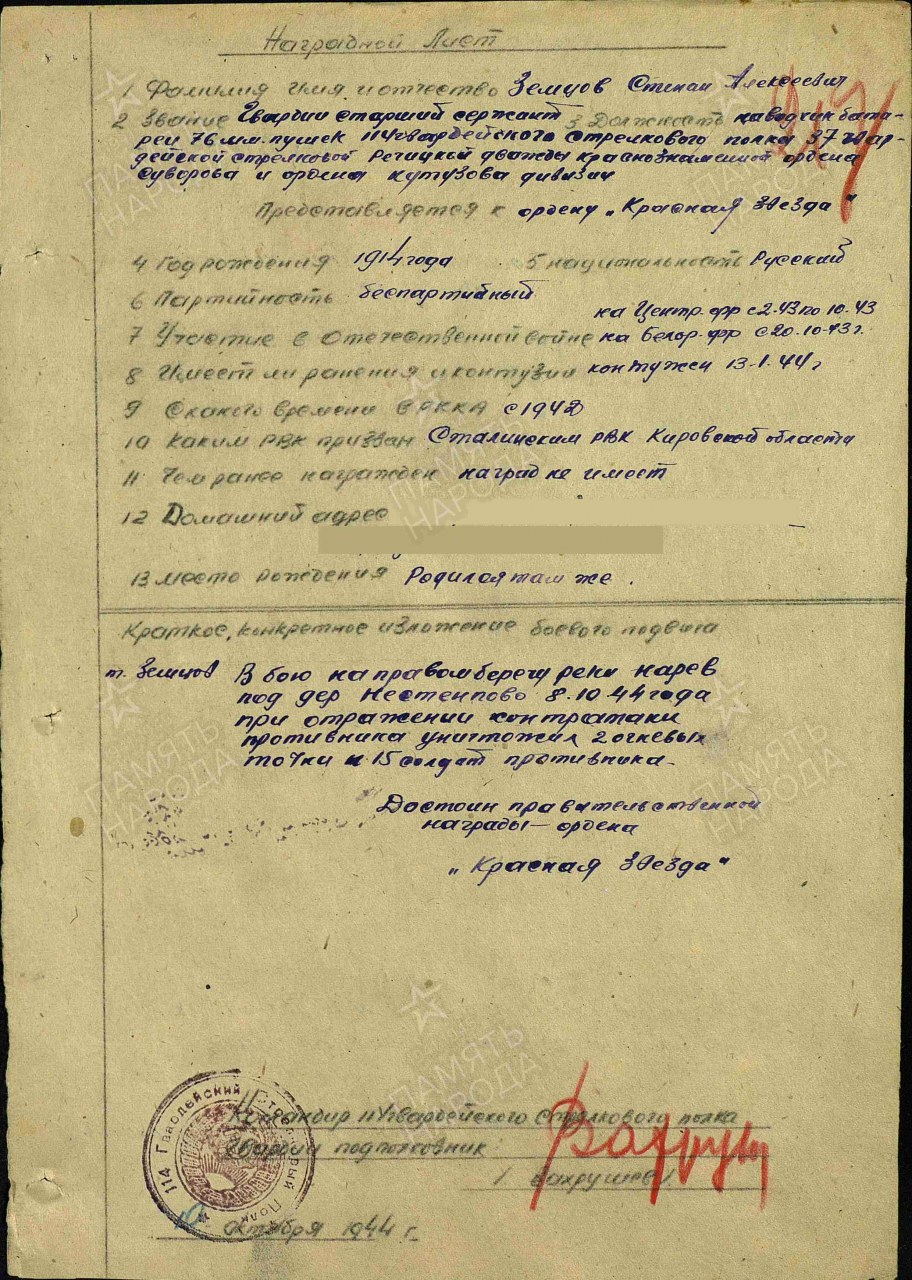 Наградной Лист
1 Фамилия имя и отчество Земцов Степан Алексеевич
2 Звание Гвардии старший сержант 3 Должность наводчик бата-
реи 76 мм. пушек 114 гвардейского стрелкового полка 37 гвар-
дейской стрелковой Речицкой дважды краснознаменной ордена
Суворова и ордена кутузова дивизии
Представляется к ордену „Красная Звезда"
4 Год рождения 1914 года 5 национальность Русский
6 Партийность беспартийный
на Центр. фр с 2.43 по 10.43
7 Участие в Отечественной войне на Белор. фр с 20.10.43 г.
8 Имеет ли ранения и контузии контужен 13.1.44 г
9 С какого времени в РККА с 1942
10 Каким РВК призван Сталинским РВК Кировской области
11 Чем ранее награжден наград не имеет
12 Домашний адрес
13 место рождения Родился там же.
Краткое, конкретное изложение боевого подвига
т. Земцов В бою на правом берегу реки нарев
под дер 8.10.44 года
при отражении контратаки
противника уничтожил 2 огневых
точки и 15 солдат противника.
Достоин правительственной
награды – ордена
„Красная Звезда"
Командир 114 гвардейского Стрелкового полка
гвардии подполковник:
/ Вахрушев /
10 октября 1944 г.
114 Гвардейский Стрелковый Полк
ПАМЯТЬ НАРОДА